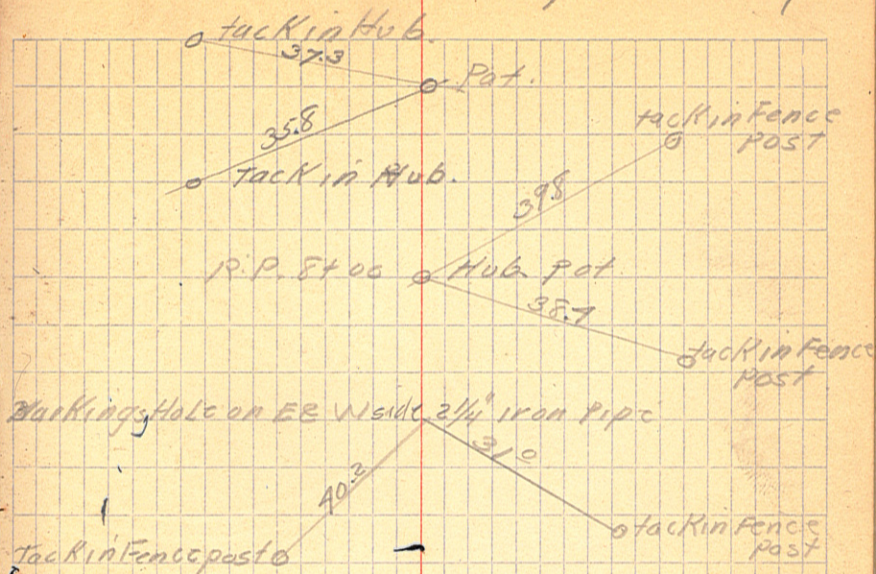 tack in Hub.
37.3
Pot.
35.8
Tack in Hub.
tack in Fence
Post
39.8
R.P. 8+00
Hub Pot
38.7
tack in Fence
Post
Hole on E&W side 2 1/4" iron Pipe
31.0
40.2
tack in Fence
Post
Tack in Fence post